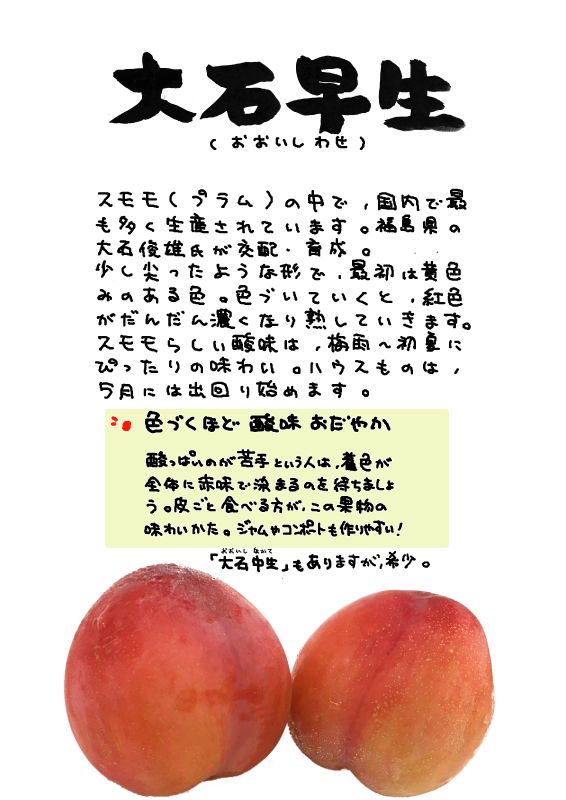 大石早生
(おおいしわせ)
スモモ(プラム)の中で,国内で最
も多く生産されています。福島県の
大石俊雄氏が交配・育成。
少し尖ったような形で,最初は黄色
みのある色。色づいていくと,紅色
がだんだん濃くなり熟していきます。
スモモらしい酸味は,梅雨〜初夏に
ぴったりの味わい。ハウスものは,
5月には出回り始めます。
色づくほど 酸味 おだやか
酸っぱいのが苦手という人は,着色が
全体に赤味で染まるのを待ちましょ
う。皮ごと食べる方が,この果物の
味わいかた。ジャムやコンポートも作りやすい!
おおいし なかて
「大石中生」もありますが,希少。